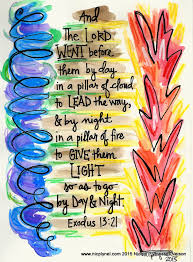 And
The LORD
WENT before
them by day
in a pillar of cloud
to LEAD the way,
& by night
in a pillar of fire
to GIVE them
LIGHT
so as to go
by Day & Night.
Exodus 13:21
www.nicplynel.com 2015
2015